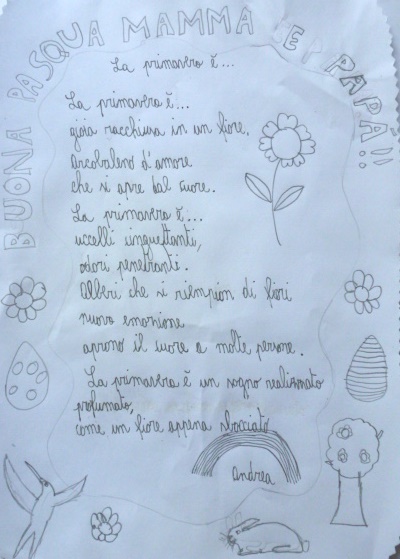 BUONA PASQUA MAMMA E PAPÀ!!
La primavera è...
La primavera è...
gioia racchiusa in un fiore.
Arcobaleno d'amore
che si apre dal cuore.
La primavera è...
uccelli cinguettanti,
odori penetranti.
Alberi che si riempion di fiori
nuove emozione
aprono il cuore a molte persone.
La primavera è un sogno realizzato
profumato,
come un fiore appena sbocciato
Andrea